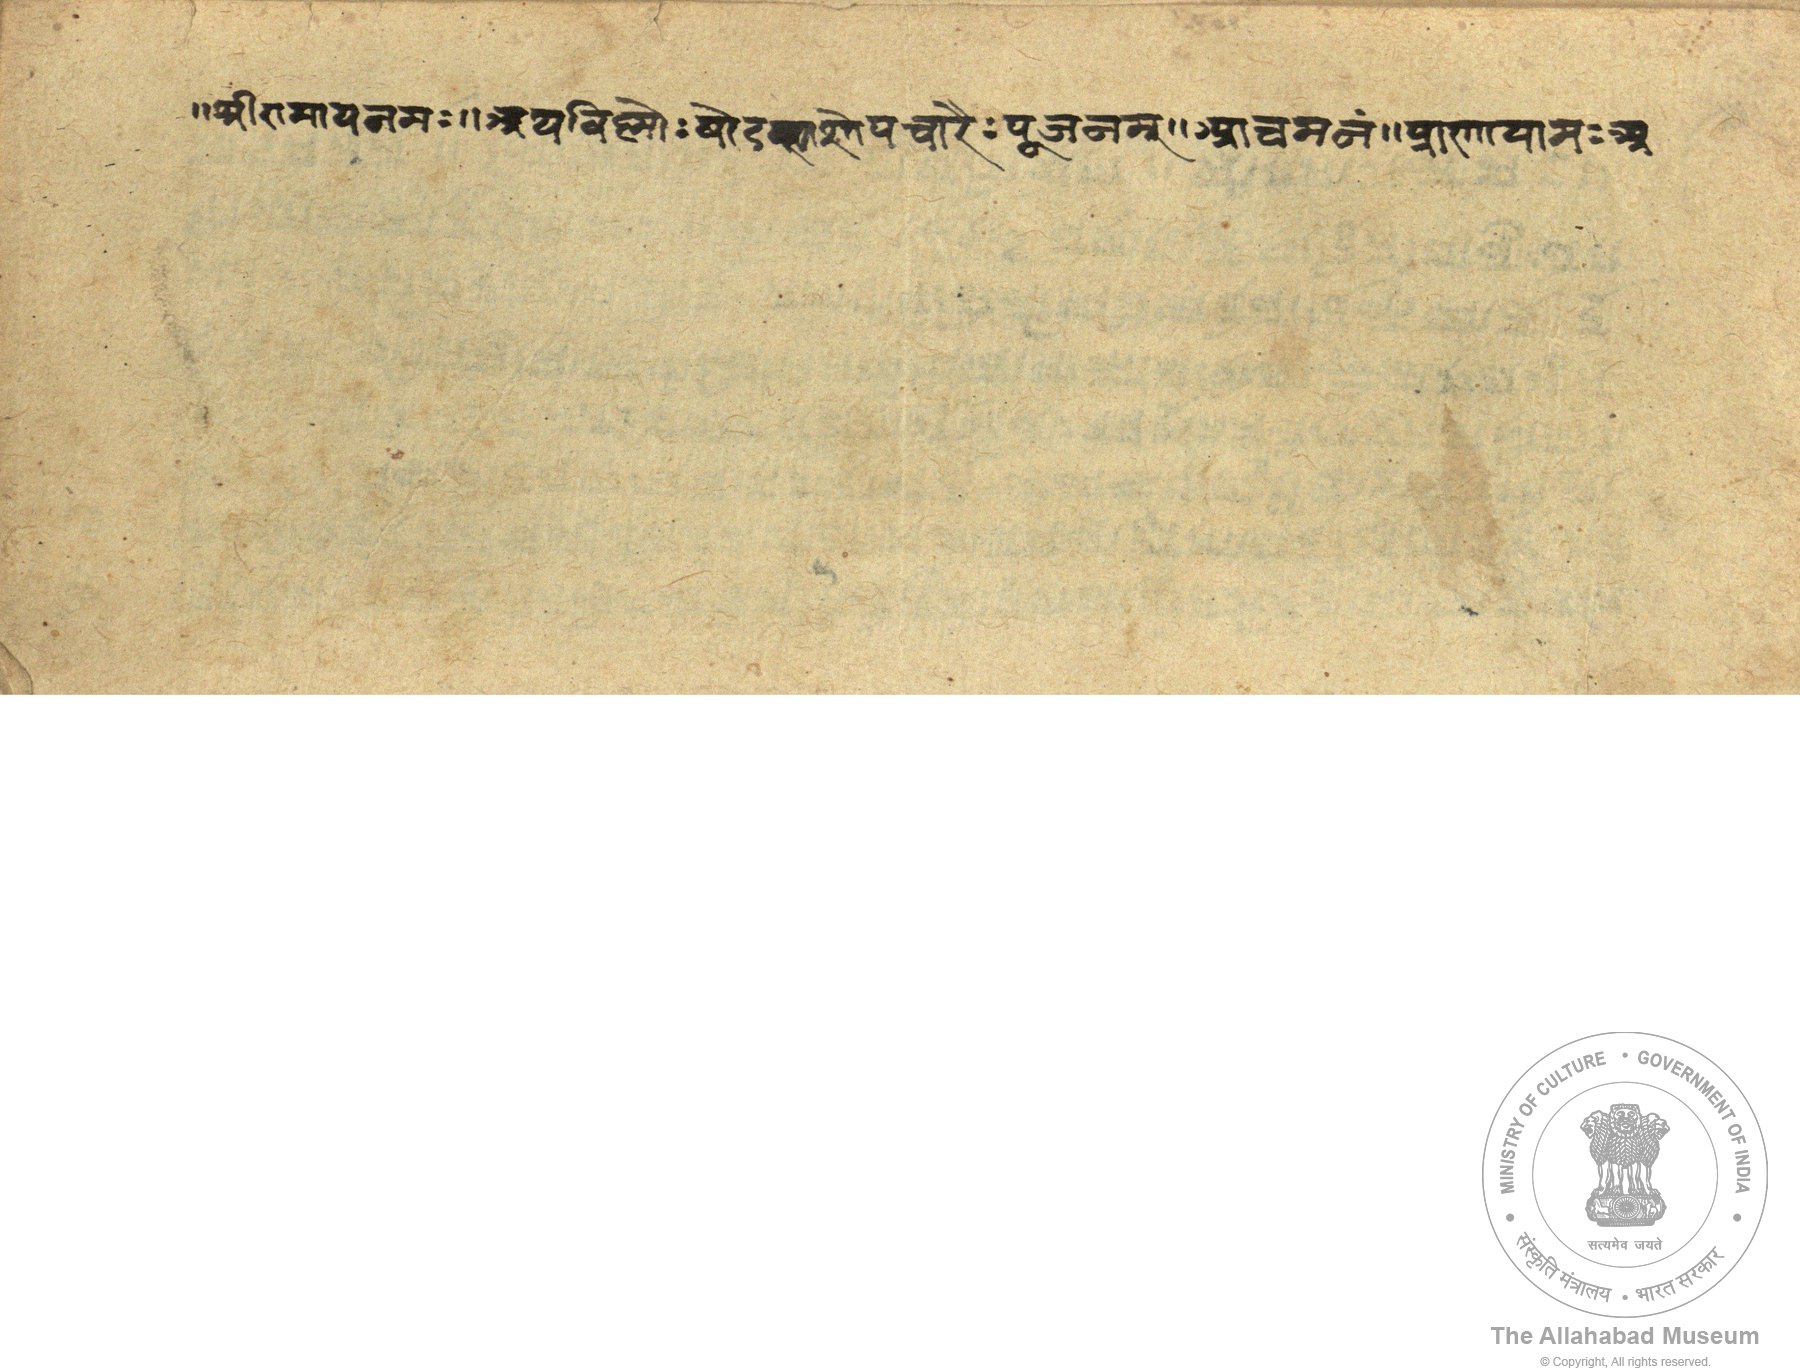 ॥श्रीरामायनमः॥अथविष्णोः षोडशोपचारैः पूजनम्॥आचमनं॥प्राणायामः अ
MINISTRY OF CULTURE • GOVERNMENT OF INDIA
सत्यमेव जयते
संस्कृति मंत्रालय • भारत सरकार
The Allahabad Museum
© Copyright, All rights reserved.